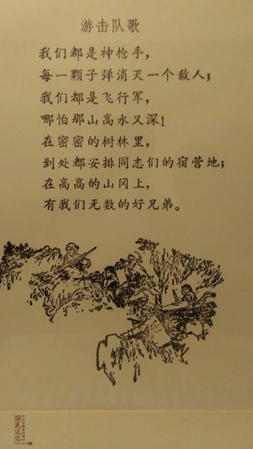 游击队歌
我们都是神枪手，
每一颗子弹消灭一个敌人；
我们都是飞行军，
哪怕那山高水又深！
在密密的树林里，
到处都安排同志们的宿营地；
在高高的山冈上，
有我们无数的好兄弟。